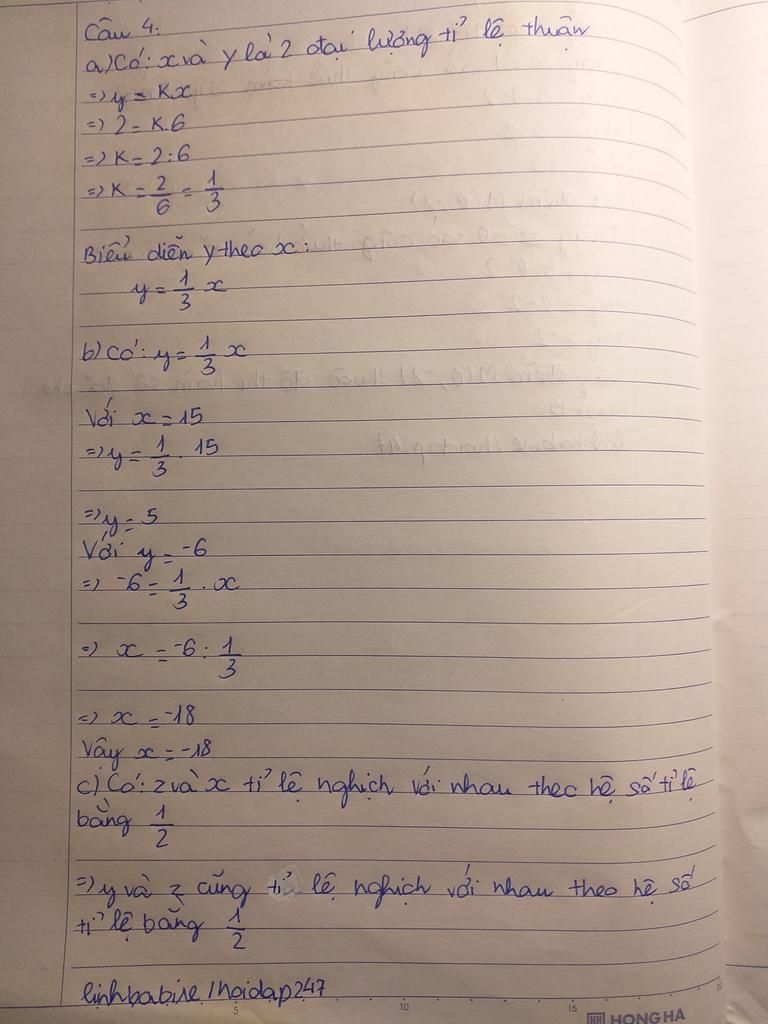 Câu 4:
a) Có: x và y là 2 đại lượng tỉ lệ thuận
=> y = Kx
=> 2 = K.6
=> K = 2:6
=> K = 2/6 = 1/3
Biểu diễn y theo x:
y = 1/3 x
b) Có: y = 1/3 x
Với x = 15
=> y = 1/3 . 15
=> y = 5
Với y = -6
=> -6 = 1/3 . x
=> x = -6 : 1/3
=> x = -18
Vậy x = -18
c) Có: z và x tỉ lệ nghịch với nhau theo hệ số tỉ lệ
bằng 1/2
=> y và z cũng tỉ lệ nghịch với nhau theo hệ số
tỉ lệ bằng 1/2
linhbabise/hoidap247
5 10 15 20
HH HONG HA